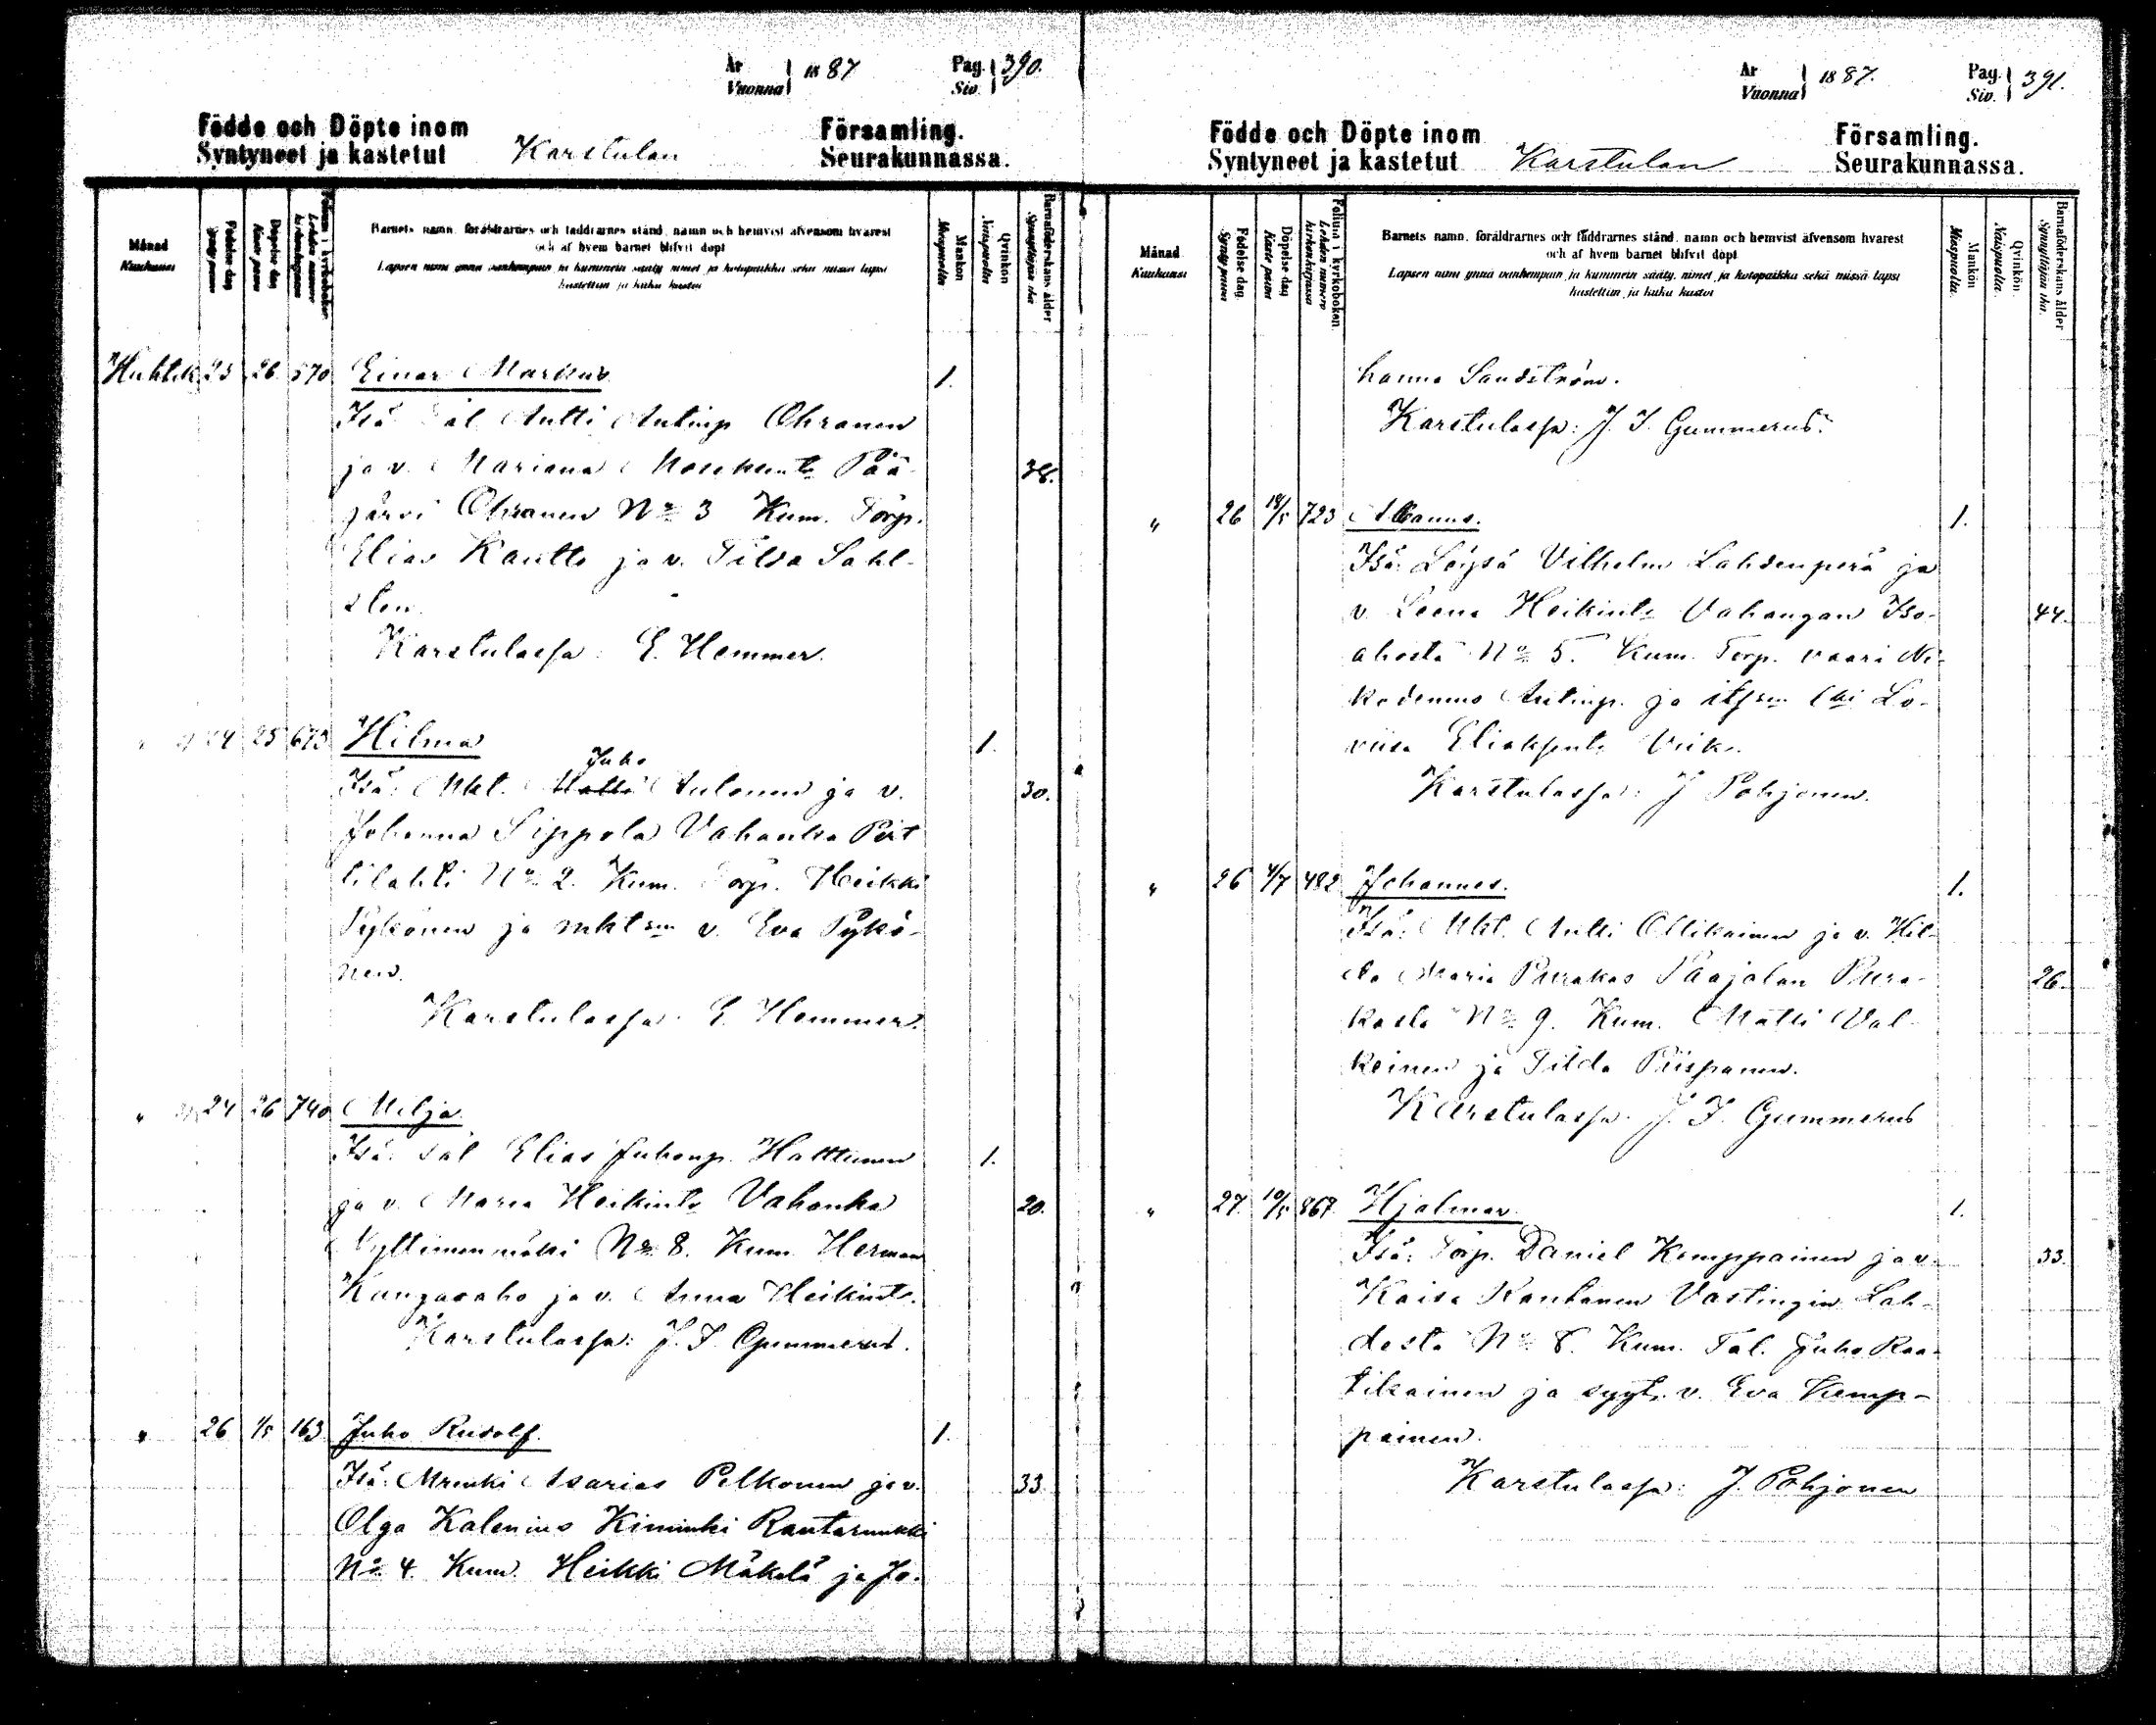 År
Vuonna 1887
Pag.
Siv. 390.
Födde och Döpte inom
Syntyneet ja kastetut Karstulan
Församling.
Seurakunnassa.
Månad
Kuukausi
Födelse dag
Synty paiva
Döpelse dag
Kaste paiva
Folium i kyrkoboken.
Lehden numero kirkonkirjassa
Barnets namn, föräldrarnes och faddrarnes stånd, namn och hemvist äfvensom hvarest
och af hvem barnet blifvit döpt
Lapsen nimi ynnä vanhempain ja kummein sääty, nimet ja kotopaikka sekä missä lapsi
kastettiin ja kuka kastoi
Mankön
Miespuolia
Qvinkön
Naispuolia
Barnaföderskans ålder
Synnyttäjän ikä
Huhtik 23 26 570 Einar Markus 1.
Isä: Antti Antinp. Ohranen
ja v. Mariana Pää-
järvi Ohranen No 3 Kum. Torp.
Elias Kautto ja v. Tilda Sahl-
sten
Karstulassa: E. Hemmer.
" 24 25 673 Hilma 1.
Juho
Isä: Mkt. Matti Aulonen ja v. 30.
Johanna Sippola Vahanka Pirt
tilahti No 2. Kum. Torp. Heikki
Pykönen ja mkt v. Eva Pykö-
nen.
Karstulassa E. Hemmer.
" 24 26 740 Milja.
Isä: Elias Juhonp. Halttunen 1.
ja v. Maria Heikint. Vahanka 20.
No 8. Kum. Herman
Kangasaho ja v. Anna Heikint.
Karstulassa: J. I. Gummerus.
" 26 1/5 163 Juho Rudolf. 1.
Isä: Asarias Pelkonen ja v. 33
Olga Kalenius Kiminki Rantarunkki
No 4 Kum. Heikki Mäkelä ja Jo-
År
Vuonna 1887.
Pag.
Siv. 391.
Födde och Döpte inom
Syntyneet ja kastetut Karstulan
Församling.
Seurakunnassa.
Månad
Kuukausi
Födelse dag
Synty paiva
Döpelse dag
Kaste paiva
Folium i kyrkoboken.
Lehden numero kirkonkirjassa
Barnets namn, föräldrarnes och faddrarnes stånd, namn och hemvist äfvensom hvarest
och af hvem barnet blifvit döpt
Lapsen nimi ynnä vanhempain ja kummein sääty, nimet ja kotopaikka sekä missä lapsi
kastettiin ja kuka kastoi
Mankön
Miespuolia.
Qvinkön
Naispuolia.
Barnaföderskans ålder
Synnyttäjän ikä.
hanna Sandström.
Karstulassa: J. I. Gummerus.
" 26 723 1.
Isä: Löysä Vilhelm Lahdenperä ja
v. Leena Heikint. Vahangan Iso- 44.
ahosta No 5. Kum. Torp. vaari Ni-
kodemus Antinp. ja Lo-
viisa Viik.
Karstulassa: J Pohjonen.
" 26 4/7 482 Johannes. 1.
Isä: Mkt. Antti Ollikainen ja v. Hil-
da Maria Purakas Paajalan Pura- 26.
kasta No 9. Kum. Matti Val-
keinen ja Tilda Piispanen.
Karstulassa. J. I. Gummerus
" 27. 10/5 867 Hjalmar. 1.
Isä: Torp. Daniel Kemppainen ja v. 33.
Kaisa Rantanen Vastingin Lah-
desta No 8. Kum. Tal. Juho Raa-
tikainen ja v. Eva Kemp-
painen.
Karstulassa: J. Pohjonen